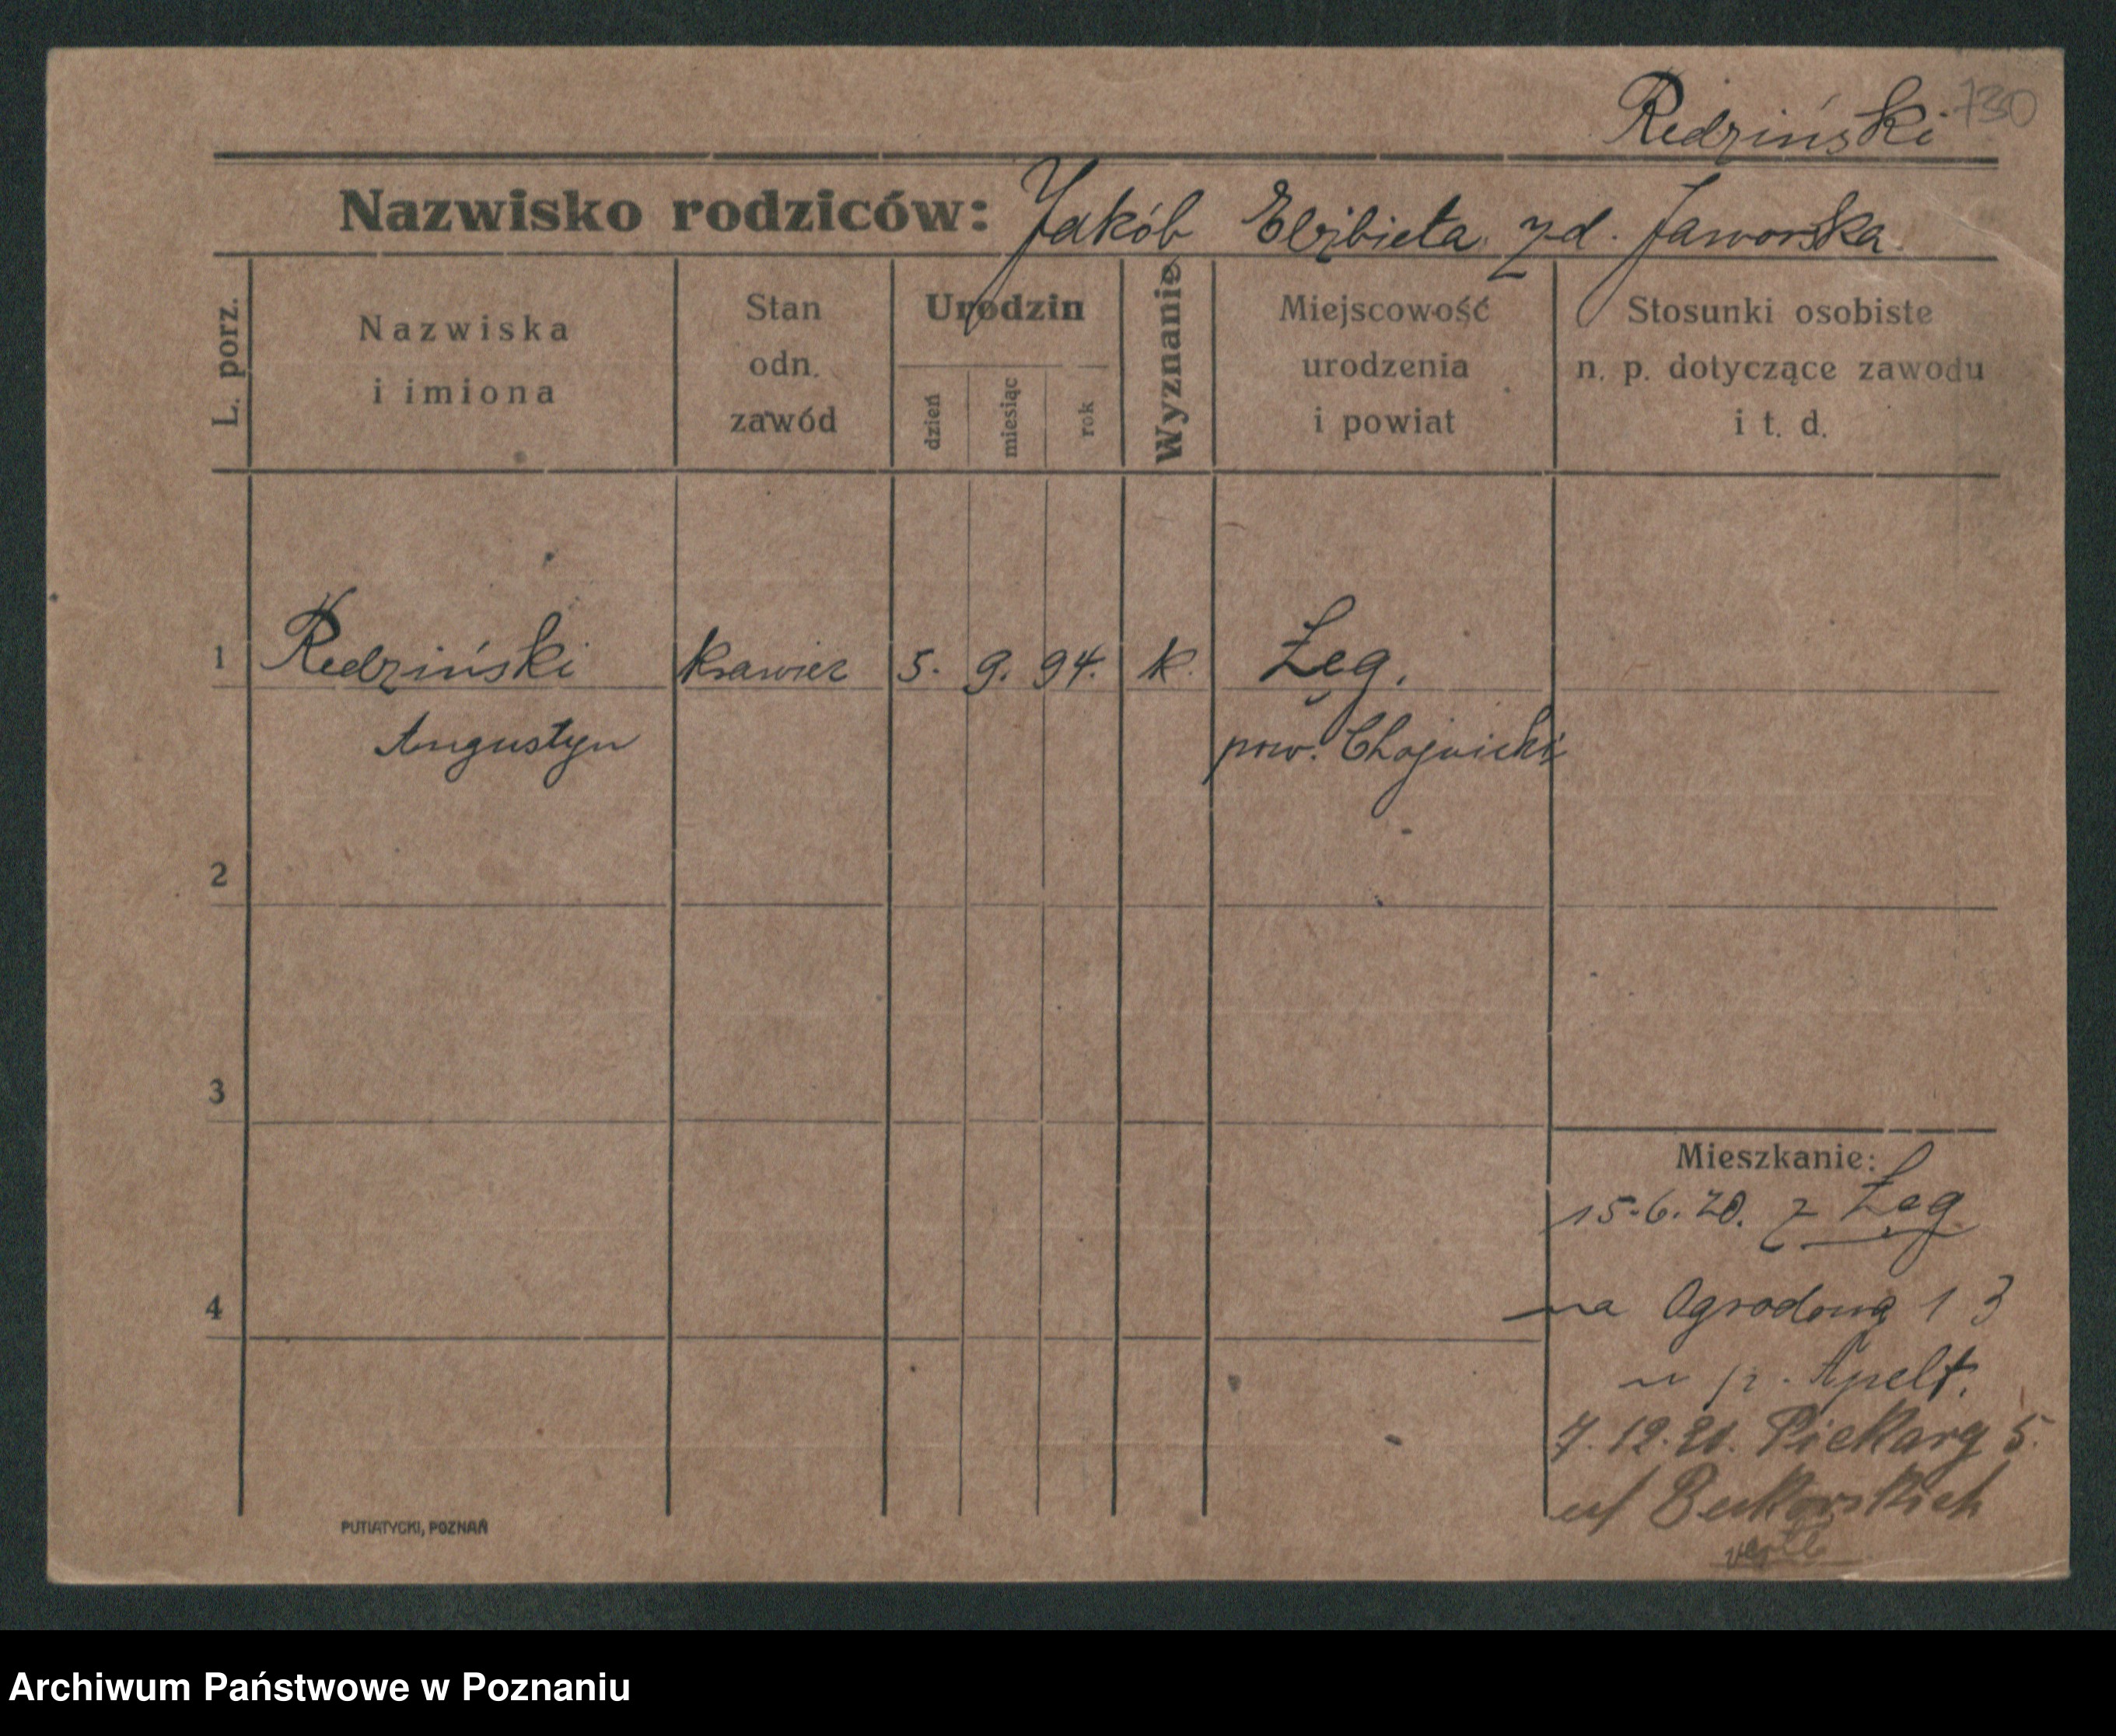 730
Redziński
Nazwisko rodziców: Jakób Elżbieta zd. Jaworska
L. porz.
Nazwiska
i imiona
Stan
odn.
zawód
Urodzin
dzień
miesiąc
rok
Wyznanie
Miejscowość
urodzenia
i powiat
Stosunki osobiste
n. p. dotyczące zawodu
i t. d.
1 Redziński krawiec 5. 9. 94. k. Łęg.
Augustyn pow. Chojnicki
2
3
Mieszkanie:
15.6.20. z Łęg
4
na Ogrodową 13
u p. Apelt.
7.12.21. Piekary 5.
u/ Bukorskich
PUTIATYCKI, POZNAŃ
Archiwum Państwowe w Poznaniu